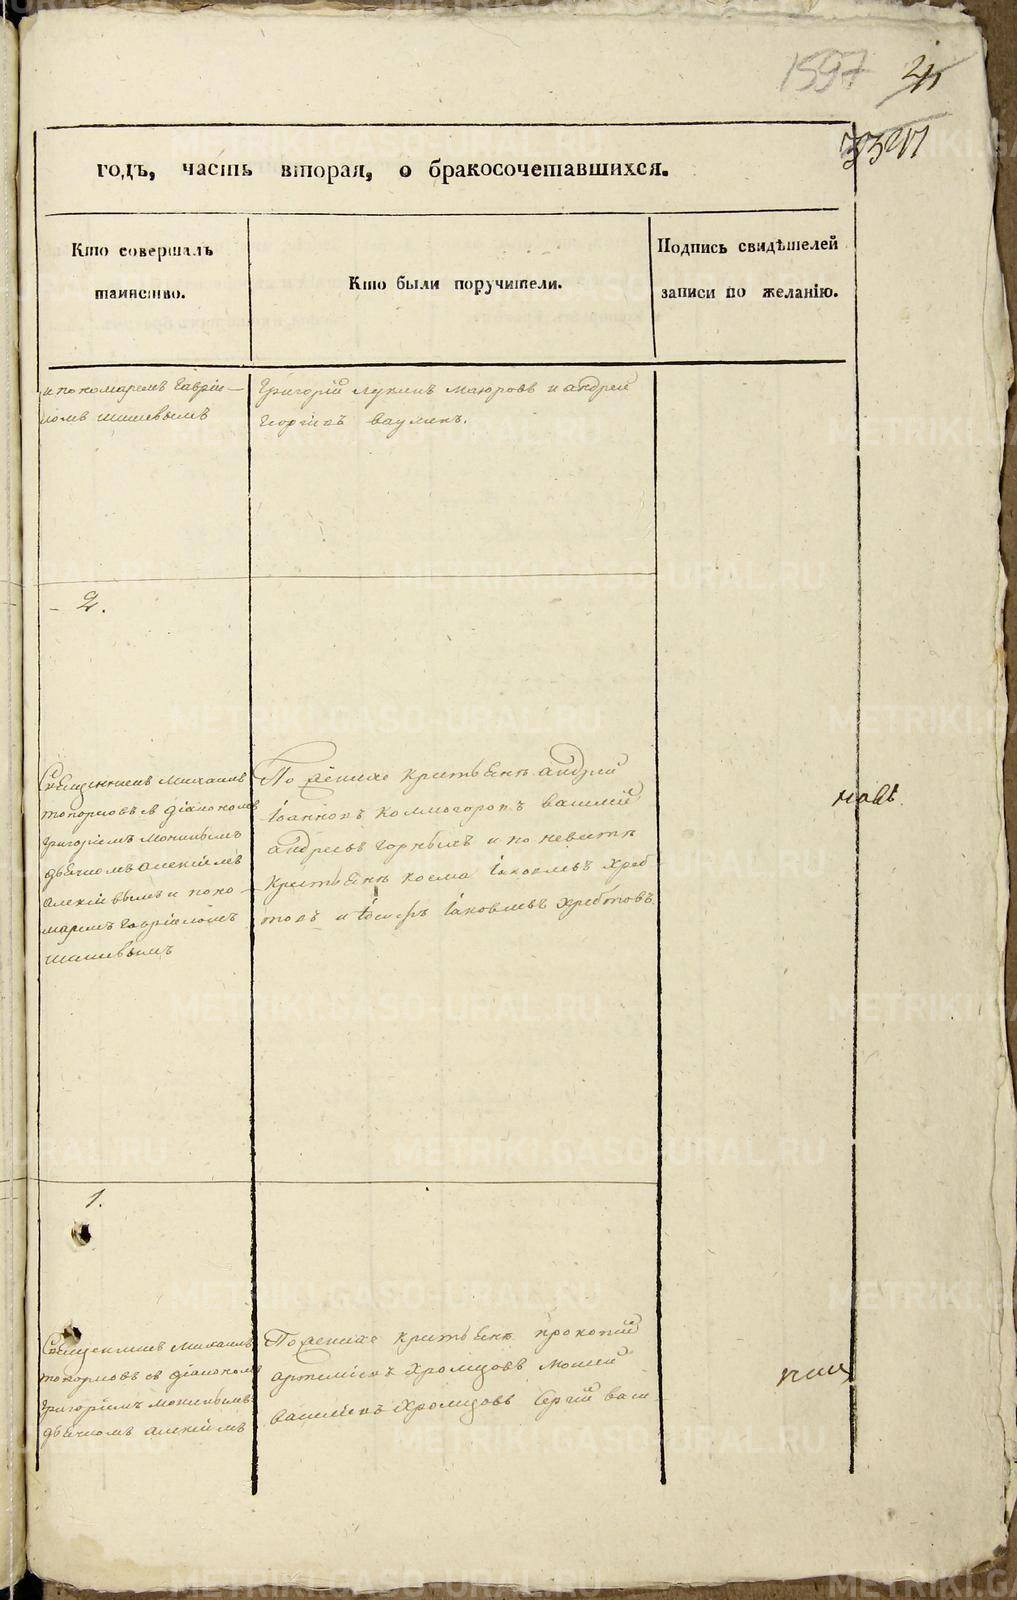 1597
годъ, часть вторая, о бракосочетавшихся.
Кто совершалъ
таинство.
Кто были поручители.
Подпись свидѣтелей
записи по желанію.
и пономаремъ Гаврiи
ломъ Шишевымъ
Григорiй Лукинъ Маюровъ и андрей
Георгiевъ Ваулинъ.
2.
Священникъ Михаилъ
топорковъ съ дiакономъ
Григорiемъ
дьячкомъ Алексiемъ
и поно
маремъ Гаврiиломъ
Шишевымъ
По женихе крестьяне андрей
Iоанновъ Колмогоровъ Василiй
андреевъ и по невесте
крестьяне косма Iаковлевъ Хреб
товъ и Iаковлевъ Хребтовъ
1.
Священникъ Михаилъ
топорковъ съ дiакономъ
Григорiемъ
дьячкомъ Алексiемъ
По женихе крестьяне прокопiй
артемiевъ Хромцовъ Моисей
Василiевъ Хромцовъ Сергiй васи
METRIKI.GASO-URAL.RU